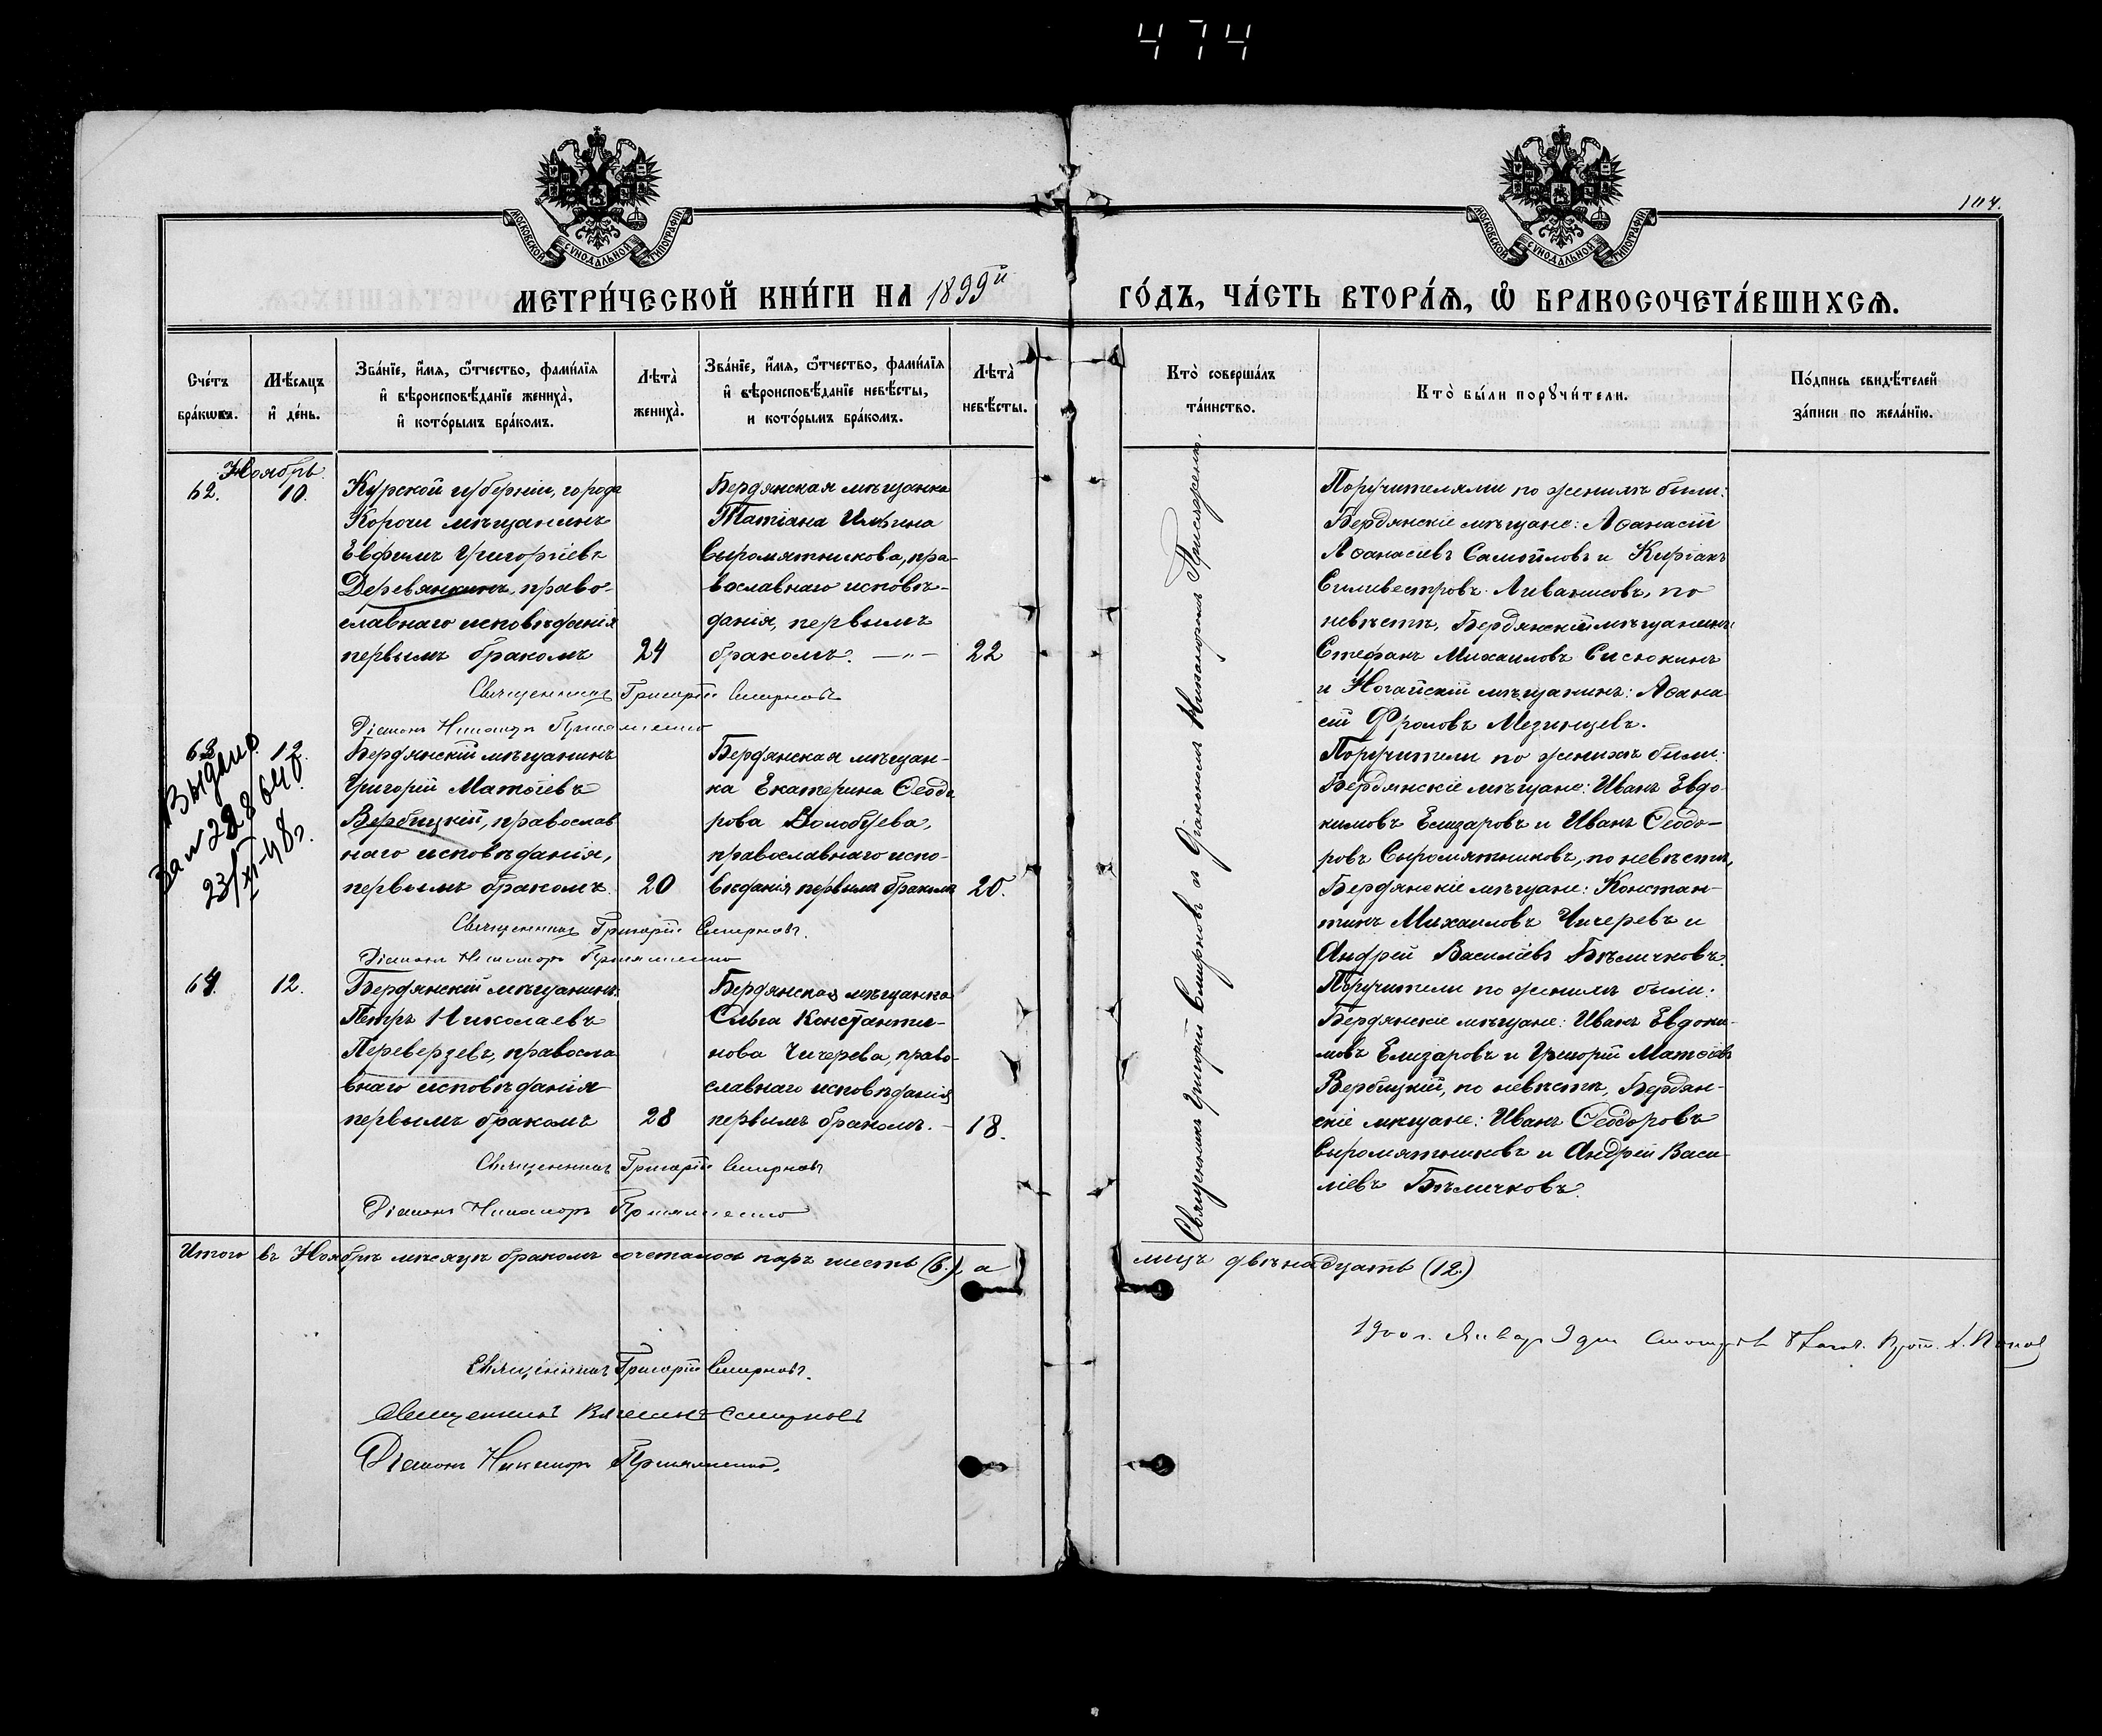 474
МОСКОВСКОЙ СѴНОДАЛЬНОЙ ТИПОГРАФІИ
МОСКОВСКОЙ СѴНОДАЛЬНОЙ ТИПОГРАФІИ
104.
МЕТРИ́ЧЕСКОЙ КНИ́ГИ НА 1899й
ГО́ДЪ, ЧА́СТЬ ВТОРА́Я, Ѽ БРАКОСОЧЕТА́ВШИХСЯ.
Сче́тъ
бра́ковъ.
Мѣ́сяцъ
и҆ де́нь.
Зва́нїе, и҆́мя, ѻ҆́тчество, фами́лїя
и҆ вѣроисповѣ́данїе жениха̀,
и҆ кото́рымъ бра́комъ.
Лѣта̀
жениха̀.
Зва́нїе, и҆́мя, ѻ҆́тчество, фами́лїя
и҆ вѣроисповѣ́данїе невѣ́сты,
и кото́рымъ бра́комъ.
Лѣта̀
невѣ́сты.
Кто̀ соверша́лъ
та́инство.
Кто̀ бы́ли порꙋчи́тели.
По́дпись свидѣ́телей
за́писи по жела́нїю.
Ноябрь
62.
10.
Курской губерніи, города
Корочи мѣщанинъ
Евфимъ Григоріевъ
Деревянкинъ, право-
славнаго исповѣданія
первымъ бракомъ
24
Бердянская мѣщанка
Татіана Ильина
Сыромятникова, пра-
вославнаго исповѣ-
данія, первымъ
бракомъ. —„—
22
Священникъ Григорій Смирновъ
Діаконъ Никаноръ
Поручителями по женихѣ были:
Бердянскіе мѣщане: Аѳанасій
Аѳанасіевъ Самойловъ и Киріакъ
Силивестровъ Ливанисовъ, по
невѣстѣ, Бердянскій мѣщанинъ
Стефанъ Михаиловъ Сисюкинъ
и Ногайскій мѣщанинъ: Аѳана
сій Фроловъ Мезинцевъ.
63
12.
Выдано
За N 228640
23/XI-48 г.
Бердянскій мѣщанинъ
Григорій Матѳіевъ
Вербицкій, православ
наго исповѣданія,
первымъ бракомъ.
20
Бердянская мѣщан-
ка Екатерина Ѳеодо
рова Волобуева,
православнаго испо-
вѣданія первымъ бракомъ
20.
Священникъ Григорій Смирновъ.
Діаконъ Никаноръ
Поручители по женихѣ были:
Бердянскіе мѣщане: Иванъ Евдо
кимовъ Елизаровъ и Иванъ Ѳеодо-
ровъ Сыромятниковъ, по невѣстѣ,
Бердянскіе мѣщане: Констан-
тинъ Михаиловъ Чичеревъ и
Андрей Василіевъ Бѣличковъ.
64.
12.
Бердянскій мѣщанинъ
Петръ Николаевъ
Переверзевъ, правосла
внаго исповѣданія
первымъ бракомъ
28
Бердянская мѣщанка
Ольга Константи-
нова Чичерева, право-
славнаго исповѣданія
первымъ бракомъ. -
18.
Священникъ Григорій Смирновъ
Діаконъ Никаноръ
Поручители по женихѣ были:
Бердянскіе мѣщане: Иванъ Евдоки-
мовъ Елизаровъ и Григорій Матѳіевъ
Вербицкій, по невѣстѣ, Бердян-
скіе мѣщане: Иванъ Ѳеодоровъ
Сыромятниковъ и Андрей Васи-
ліевъ Бѣличковъ.
Священникъ Григорій Смирновъ съ Діакономъ Никаноромъ
Итого въ Ноябрѣ мѣсяцѣ бракомъ сочеталось паръ шесть (6.), а
лицъ двѣнадцать (12.)
Священникъ Григорій Смирновъ.
Священникъ Смирновъ
Діаконъ Никаноръ
1900 г. Январ 3 дня